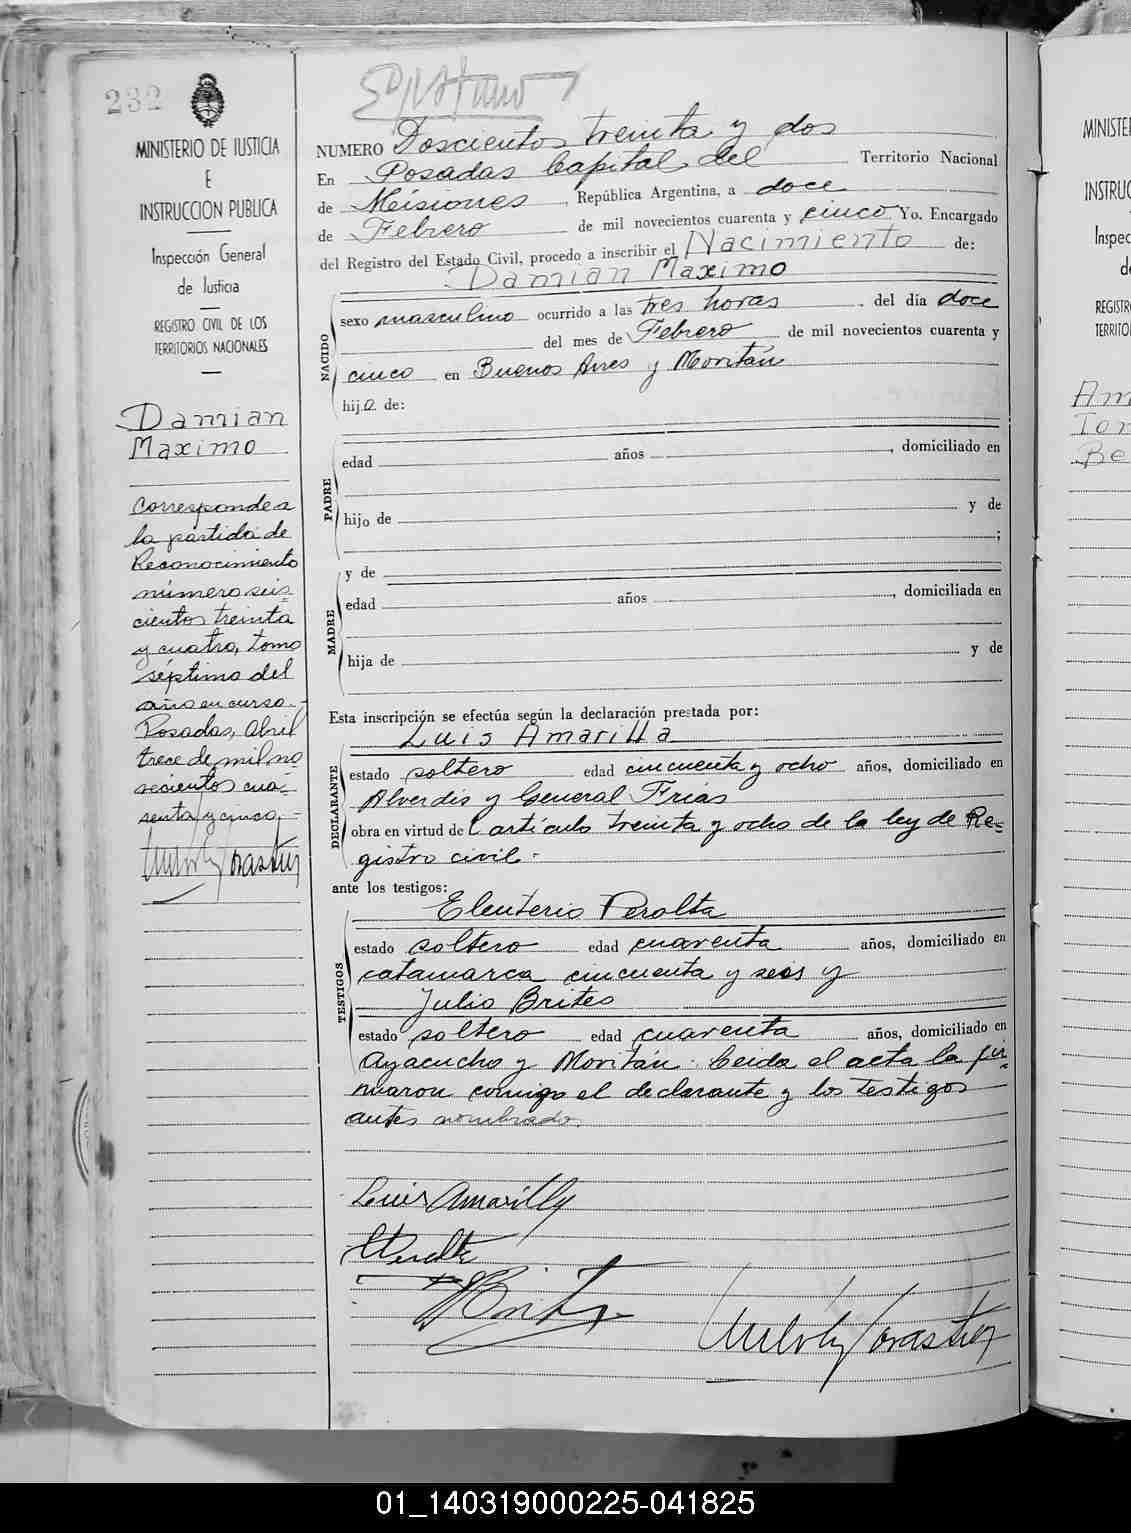 232
MINISTERIO DE JUSTICIA
E
INSTRUCCION PUBLICA
Inspección General
de Justicia
REGISTRO CIVIL DE LOS
TERRITORIOS NACIONALES
Damian
Maximo
Corresponde a
la partida de
Reconocimiento
número seis-
cientos treinta
y cuatro, tomo
séptimo del
año en curso.-
Posadas, Abril
trece de mil no
vecientos cua-
renta y cinco.-
NUMERO Doscientos treinta y dos
En Posadas Capital del Territorio Nacional
de Misiones, República Argentina, a doce
de Febrero de mil novecientos cuarenta y cinco Yo. Encargado
del Registro del Estado Civil, procedo a inscribir el Nacimiento de:
Damian Maximo
NACIDO
sexo masculino ocurrido a las tres horas del día doce
del mes de Febrero de mil novecientos cuarenta y
cinco en Buenos Aires y Moritán
hijo de:
PADRE
edad años, domiciliado en
hijo de y de
;
y de
MADRE
edad años, domiciliada en
hija de y de
Esta inscripción se efectúa según la declaración prestada por:
Luis Amarilla
DECLARANTE
estado soltero edad cincuenta y ocho años, domiciliado en
Alverdis y General Frias
obra en virtud del artículo treinta y ocho de la ley de Re-
gistro civil.-
ante los testigos:
Eleuterio Peralta
TESTIGOS
estado soltero edad cuarenta años, domiciliado en
catamarca cincuenta y seis y
Julio Brites
estado soltero edad cuarenta años, domiciliado en
Ayacucho y Moritán. Leida el acta la fir-
maron comigo el declarante y los testigos
antes nombrado.
Luis Amarilla
EPeralta
JBrites
MINISTER
INSTRUC
Inspec
de
REGISTR
TERRITO
Am
Tor
Be
01_140319000225-041825